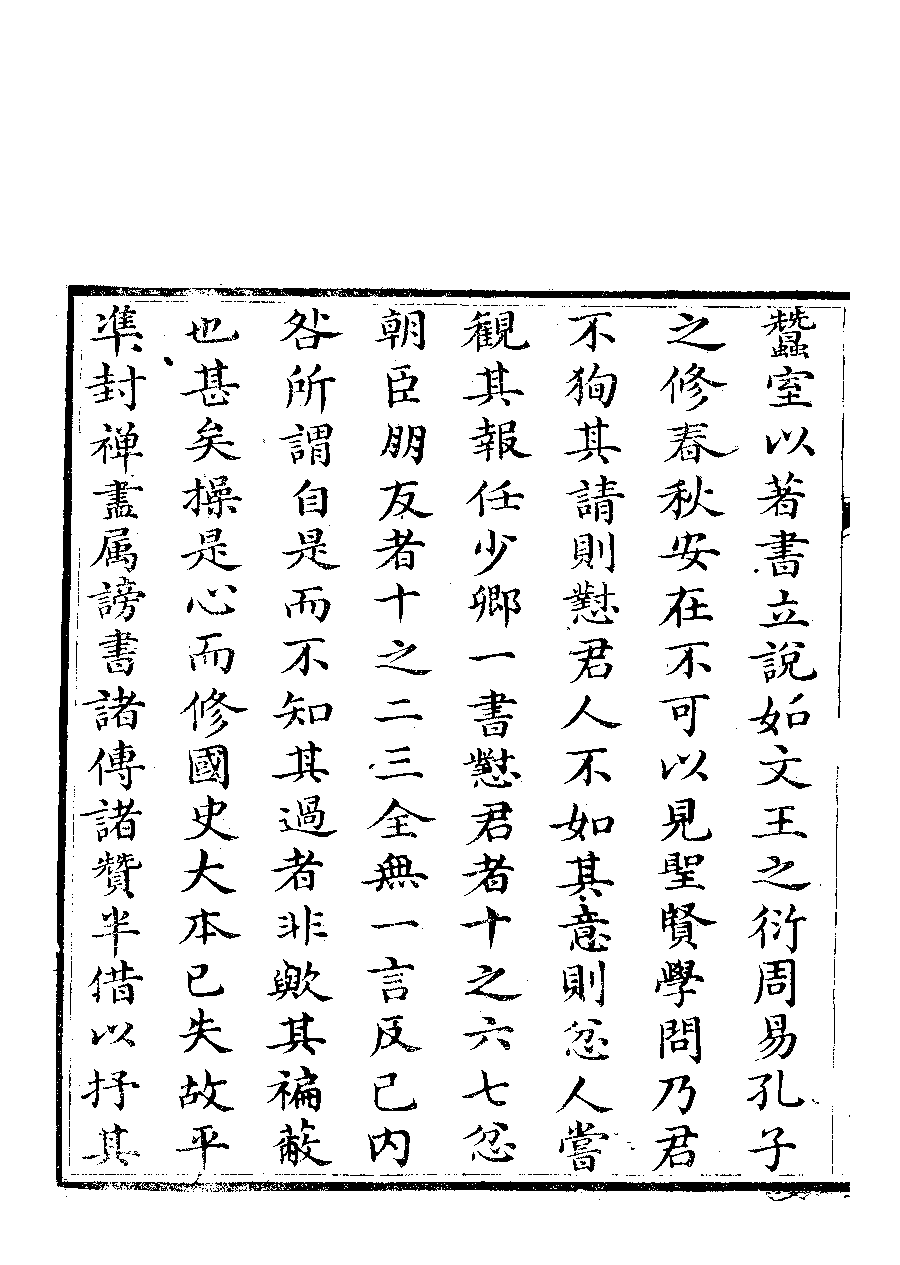 蠶室以著書立說如文王之衍周易孔子
之修春秋安在不可以見聖賢學問乃君
不狥其請則懟君人不如其意則忿人嘗
觀其報任少卿一書懟君者十之六七忿
朝臣朋友者十之二三全無一言反己内
咎所謂自是而不知其過者非歟其褊蔽
也甚矣操是心而修國史大本已失故平
凖封禅盡属謗書諸傳諸贊半借以抒其